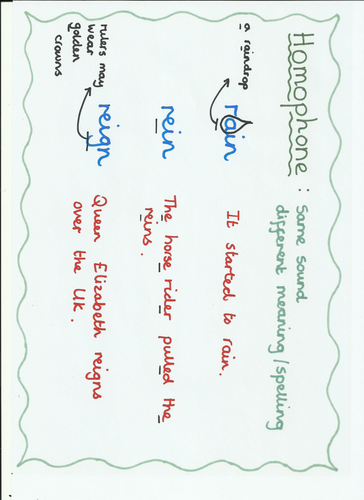 Homophone : Same sound
different meaning/spelling
a raindrop
rain
It started to rain.
rein
The horse rider pulled the
reins.
rulers may
wear
golden
crowns
reign
Queen Elizabeth reigns
over the UK.